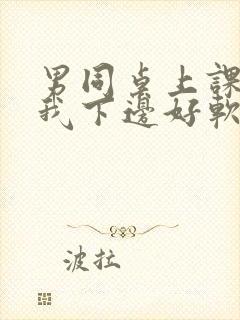 男同桌上課
我下邊好軟
波拉